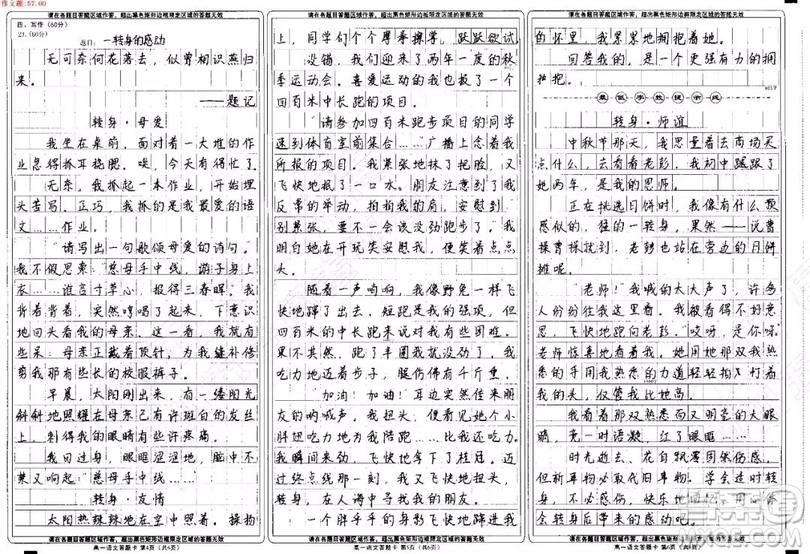 作文题:57.00
请在各题目区域作答，超出黑色矩形边框限定区域的答题无效
四、写作(60分)
23.(60分)
题目：一转身的感动
无可奈何花落去，似曾相识燕归
来。
——题记
转身·母爱
我坐在桌前，面对着一大堆的作
业急得抓耳挠腮。唉，今天作业得忙了
无奈，我抓起一本作业，开始埋
头苦写。正巧，我抓的是我最爱的语
文……作业。
“请写出一句歌颂母爱的诗句。”
我不假思索：慈母手中线，游子身上
衣……谁言寸草心，报得三春晖。我
背着背着，突然哼唱了起来，下意识
地回头看我的母亲。这一看，我就有
些呆：母亲正戴着顶针，为我缝补修
剪我那有些长的校服裤子。
早晨，太阳刚出来，有一缕阳光
斜斜地照耀在母亲已有许斑白的发丝
上，刺得我的眼睛有些许疼痛。
我回过身，眼眶湿湿地，脑中不
禁又响起：“慈母手中线……”
转身·友情
太阳热辣辣地在空中照着。操场
请在各题目区域作答，超出黑色矩形边框限定区域的答题无效
高一语文答题卡 第4页（共6页）
请在各题目区域作答，超出黑色矩形边框限定区域的答题无效
上，同学们个个摩拳擦掌，跃跃欲试
没错，我们迎来了两年一度的秋
季运动会。喜爱运动的我也报了一个
四百米中长跑的项目。
“请参加四百米跑步项目的同学
速到体育室前集合……”广播上念着我
所报的项目。我紧张地抹了把脸，又
飞快地抿了一口水。朋友注意到了我
反常的举动，拍拍我的肩，安慰到：
“别紧张，要不一会该没劲跑步了。”我
明白她在开玩笑安慰我，便笑着点点
头。
随着一声哨响，我像野兔一样飞
快地蹿了出去，短跑是我的强项，但
四百米的中长跑来说对我有些困难。
果不其然，跑了半圈我就没劲了，我
吃力地迈着步子，腿仿佛有千斤重，
“加油！加油！”耳边突然传来朋
友的呐喊声。我扭头，便看见她小
胖翅吃力地为我陪跑……比我还吃力。
我瞬间来劲，飞快地拿下了桂冠。迈
过终点线那一刻，我又飞快地扭头，
转身，在人海中寻找我的朋友。
一个胖乎乎的身影飞快地蹿进我
请在各题目区域作答，超出黑色矩形边框限定区域的答题无效
高一语文答题卡 第5页（共6页）
请在各题目区域作答，超出黑色矩形边框限定区域的答题无效
的怀里，我紧紧地拥抱着她。
回答我的，是一个更强有力的拥
抱。
转身·师谊
中秋节那天，我思量着去商场买
点什么，去看看老彭，我初中跟了
她两年，是我的恩师。
正在挑选月饼时，我像有什么预
感似的，猛的一转身。果然——说曹
操曹操就到，老彭也站在旁边的月饼
摊呢。
“老师！”我喊的太大声了，许多
人纷纷往我这边看，我却不好意
思，飞快地跑向老彭。“哎呀，是你呀。”
老师惊喜地看着我。她用她那双我熟
悉的手用我熟悉的力道轻轻抚摸着
我的头，仅管我比她高。
我看着那双熟悉而又明莹的大眼
睛，一时语凝，红了眼眶……
时光逝去，花自飘零固然伤感，
但燕有归期依旧如年。学会适时转
身，不必感伤，快乐地回忆，用心体
会转身后带来的感动吧。
请在各题目区域作答，超出黑色矩形边框限定区域的答题无效
高一语文答题卡 第6页（共6页）